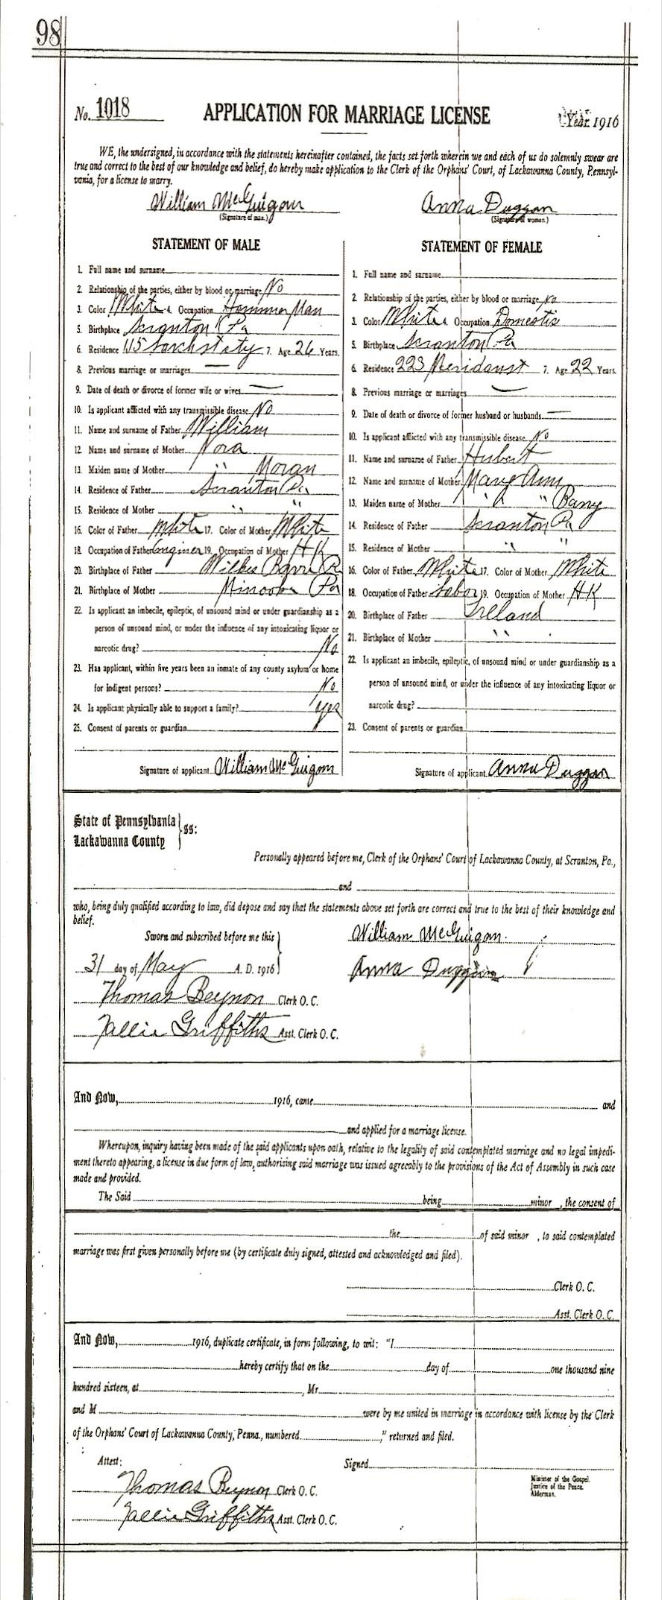 98
No. 1018 APPLICATION FOR MARRIAGE LICENSE Year 1916
WE, the undersigned, in accordance with the statements hereinafter contained, the facts set forth wherein we and each of us do solemnly swear are
true and correct to the best of our knowledge and belief, do hereby make application to the Clerk of the Orphans' Court, of Lackawanna County, Pennsyl-
vania, for a license to marry.
William McGuigan
(Signature of man.)
Anna Duggan
(Signature of woman.)
STATEMENT OF MALE
1. Full name and surname
2. Relationship of the parties, either by blood or marriage No
3. Color White 4. Occupation Hammer Man
5. Birthplace Scranton Pa
6. Residence 115 city 7. Age 26 Years.
8. Previous marriage or marriages —
9. Date of death or divorce of former wife or wives —
10. Is applicant afflicted with any transmissible disease No
11. Name and surname of Father William
12. Name and surname of Mother Nora
13. Maiden name of Mother " Moran
14. Residence of Father Scranton Pa
15. Residence of Mother " "
16. Color of Father White 17. Color of Mother White
18. Occupation of Father Engineer 19. Occupation of Mother H K
20. Birthplace of Father Wilkes Barre Pa
21. Birthplace of Mother Minooka Pa
22. Is applicant an imbecile, epileptic, of unsound mind or under guardianship as a
person of unsound mind, or under the influence of any intoxicating liquor or
narcotic drug? No
23. Has applicant, within five years been an inmate of any county asylum or home
for indigent persons? No
24. Is applicant physically able to support a family? Yes
25. Consent of parents or guardian
Signature of applicant William McGuigan
STATEMENT OF FEMALE
1. Full name and surname
2. Relationship of the parties, either by blood or marriage No
3. Color White 4. Occupation Domestic
5. Birthplace Scranton Pa
6. Residence 223 Meridian st 7. Age 22 Years.
8. Previous marriage or marriages —
9. Date of death or divorce of former husband or husbands —
10. Is applicant afflicted with any transmissible disease No
11. Name and surname of Father Hubert
12. Name and surname of Mother Mary Ann
13. Maiden name of Mother " " Barry
14. Residence of Father Scranton Pa
15. Residence of Mother " "
16. Color of Father White 17. Color of Mother White
18. Occupation of Father Labor 19. Occupation of Mother H K
20. Birthplace of Father Ireland
21. Birthplace of Mother " "
22. Is applicant an imbecile, epileptic, of unsound mind or under guardianship as a
person of unsound mind, or under the influence of any intoxicating liquor or
narcotic drug?
23. Consent of parents or guardian
Signature of applicant Anna Duggan
State of Pennsylvania
Lackawanna County } ss:
Personally appeared before me, Clerk of the Orphans' Court of Lackawanna County, at Scranton, Pa.,
and
who, being duly qualified according to law, did depose and say that the statements above set forth are correct and true to the best of their knowledge and
belief.
Sworn and subscribed before me this
31 day of May A. D. 1916
William McGuigan
Anna Duggan
Thomas Beynon Clerk O. C.
Tallie Griffiths Asst. Clerk O. C.
And Now, 1916, came and
and applied for a marriage license.
Whereupon, inquiry having been made of the said applicants upon oath, relative to the legality of said contemplated marriage and no legal impedi-
ment thereto appearing, a license in due form of law, authorising said marriage was issued agreeably to the provisions of the Act of Assembly in such case
made and provided.
The Said being minor , the consent of
the of said minor , to said contemplated
marriage was first given personally before me (by certificate duly signed, attested and acknowledged and filed).
Clerk O. C.
Asst. Clerk O. C.
And Now, 1916, duplicate certificate, in form following, to wit: "I
hereby certify that on the day of one thousand nine
hundred sixteen, at , Mr
and M were by me united in marriage in accordance with license by the Clerk
of the Orphans' Court of Lackawanna County, Penna., numbered ," returned and filed.
Attest: Signed
Minister of the Gospel.
Justice of the Peace.
Alderman.
Thomas Beynon Clerk O. C.
Tallie Griffiths Asst. Clerk O. C.